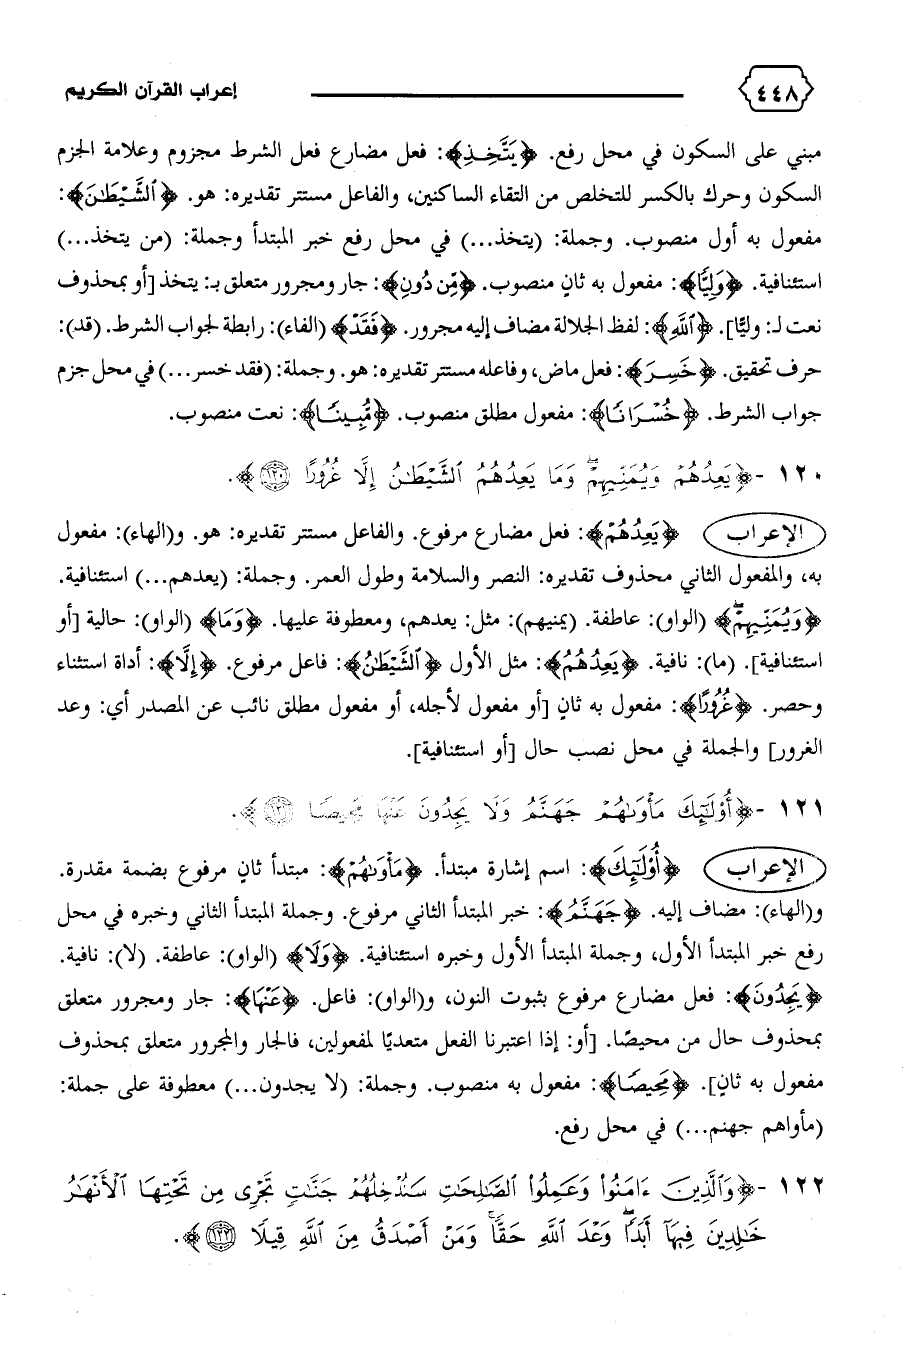 ٤٤٨
إعراب القرآن الكريم
مبني على السكون في محل رفع. ﴿يَتَّخِذِ﴾: فعل مضارع فعل الشرط مجزوم وعلامة الجزم
السكون وحرك بالكسر للتخلص من التقاء الساكنين، والفاعل مستتر تقديره: هو. ﴿ٱلشَّيْطَٰنَ﴾:
مفعول به أول منصوب. وجملة: (يتخذ...) في محل رفع خبر المبتدأ وجملة: (من يتخذ...)
استئنافية. ﴿وَلِيًّا﴾: مفعول به ثانٍ منصوب. ﴿مِّن دُونِ﴾: جار ومجرور متعلق بـ: يتخذ [أو بمحذوف
نعت لـ: وليًّا]. ﴿ٱللَّهِ﴾: لفظ الجلالة مضاف إليه مجرور. ﴿فَقَدْ﴾ (الفاء): رابطة لجواب الشرط. (قد):
حرف تحقيق. ﴿خَسِرَ﴾: فعل ماض، وفاعله مستتر تقديره: هو. وجملة: (فقد خسر...) في محل جزم
جواب الشرط. ﴿خُسْرَانًا﴾: مفعول مطلق منصوب. ﴿مُّبِينًا﴾: نعت منصوب.
١٢٠ - ﴿يَعِدُهُمْ وَيُمَنِّيهِمْۖ وَمَا يَعِدُهُمُ ٱلشَّيْطَٰنُ إِلَّا غُرُورًا ١٢٠﴾.
الإعراب ﴿يَعِدُهُمْ﴾: فعل مضارع مرفوع. والفاعل مستتر تقديره: هو. و(الهاء): مفعول
به، والمفعول الثاني محذوف تقديره: النصر والسلامة وطول العمر. وجملة: (يعدهم...) استئنافية.
﴿وَيُمَنِّيهِمْۖ﴾ (الواو): عاطفة. (يمنيهم): مثل: يعدهم، ومعطوفة عليها. ﴿وَمَا﴾ (الواو): حالية [أو
استئنافية]. (ما): نافية. ﴿يَعِدُهُمُ﴾: مثل الأول ﴿ٱلشَّيْطَٰنُ﴾: فاعل مرفوع. ﴿إِلَّا﴾: أداة استثناء
وحصر. ﴿غُرُورًا﴾: مفعول به ثانٍ [أو مفعول لأجله، أو مفعول مطلق نائب عن المصدر أي: وعد
الغرور] والجملة في محل نصب حال [أو استئنافية].
١٢١ - ﴿أُوْلَٰٓئِكَ مَأْوَىٰهُمْ جَهَنَّمُ وَلَا يَجِدُونَ عَنْهَا مَحِيصًا ١٢١﴾.
الإعراب ﴿أُوْلَٰٓئِكَ﴾: اسم إشارة مبتدأ. ﴿مَأْوَىٰهُمْ﴾: مبتدأ ثانٍ مرفوع بضمة مقدرة.
و(الهاء): مضاف إليه. ﴿جَهَنَّمُ﴾: خبر المبتدأ الثاني مرفوع. وجملة المبتدأ الثاني وخبره في محل
رفع خبر المبتدأ الأول، وجملة المبتدأ الأول وخبره استئنافية. ﴿وَلَا﴾ (الواو): عاطفة. (لا): نافية.
﴿يَجِدُونَ﴾: فعل مضارع مرفوع بثبوت النون، و(الواو): فاعل. ﴿عَنْهَا﴾: جار ومجرور متعلق
بمحذوف حال من محيصًا. [أو: إذا اعتبرنا الفعل متعديًا لمفعولين، فالجار والمجرور متعلق بمحذوف
مفعول به ثانٍ]. ﴿مَحِيصًا﴾: مفعول به منصوب. وجملة: (لا يجدون...) معطوفة على جملة:
(مأواهم جهنم...) في محل رفع.
١٢٢ - ﴿وَٱلَّذِينَ ءَامَنُوا۟ وَعَمِلُوا۟ ٱلصَّٰلِحَٰتِ سَنُدْخِلُهُمْ جَنَّٰتٍ تَجْرِى مِن تَحْتِهَا ٱلْأَنْهَٰرُ
خَٰلِدِينَ فِيهَآ أَبَدًاۖ وَعْدَ ٱللَّهِ حَقًّاۚ وَمَنْ أَصْدَقُ مِنَ ٱللَّهِ قِيلًا ١٢٢﴾.